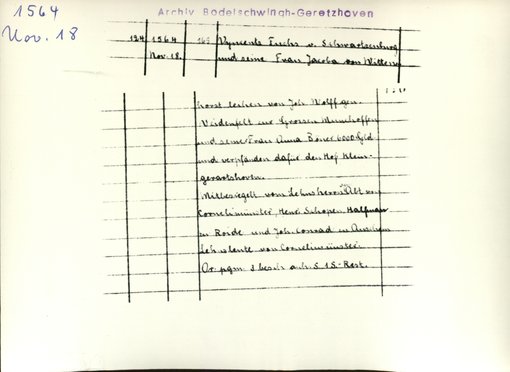 1564
Nov. 18
Archiv Bodelschwingh-Geretzhoven
124 1564 Vyncentz Fuchs v. Schwartzenburg
Nov. 18. und seine Frau Jacoba von Witten-
horst leihen von Joh. Wolff gen.
zur Grossen Munnhoffen
und seine Frau Anna Böner 6000 Gld
und verpfänden dafür den Hof Klein-
geratshoven.
Mitbesiegelt vom Lehnsherrn Abt von
Cornelimünster, Henr. Schopen Halfman
zu Rorde und Joh. Conrad zu
Lehnsleute von Cornelimünster.
Or. pgm. 3 besch. anh. S. 1 S.-Rest.